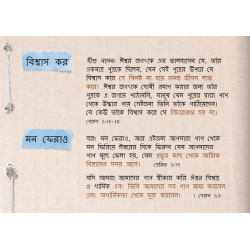 বিশ্বাস কর
যীশু বলেন: ঈশ্বর জগৎকে এত ভালবাসেন যে, তাঁর
একমাত্র পুত্রকে দিলেন, যেন সেই পুত্রের উপরে যে
বিশ্বাস করে সে বিনষ্ট না হয় অনন্ত জীবন লাভ
করে। ঈশ্বর জগৎকে দোষী প্রমাণ করার জন্য তাঁর
পুত্রকে এ জগতে পাঠাননি, মানুষ যেন পুত্রের দ্বারা পাপ
থেকে উদ্ধার পায় সেইজন্য তিনি তাঁকে পাঠিয়েছেন।
যে কেউ তাঁকে বিশ্বাস করে সে বিচারপ্রাপ্ত হয় না।
যোহন ৩:১৬-১৮
মন ফেরাও
বরং মন ফেরাও, আর এইজন্য আপনারা পাপ থেকে
মন ফিরিয়ে ঈশ্বরের দিকে ফিরুন যেন আপনাদের
পাপ মুছে ফেলা হয়, যেন প্রভুর কাছ থেকে আত্মিক
বিশ্রামের সময় আসে। প্রেরিত ৩:১৯
যদি আমরা আমাদের পাপ স্বীকার করি ঈশ্বর বিশ্বস্ত
ও ধার্মিক এবং তিনি আমাদের সব পাপ ক্ষমা করবেন
এবং অধার্মিকতা থেকে মুক্ত করবেন। ১ যোহন ১:৯